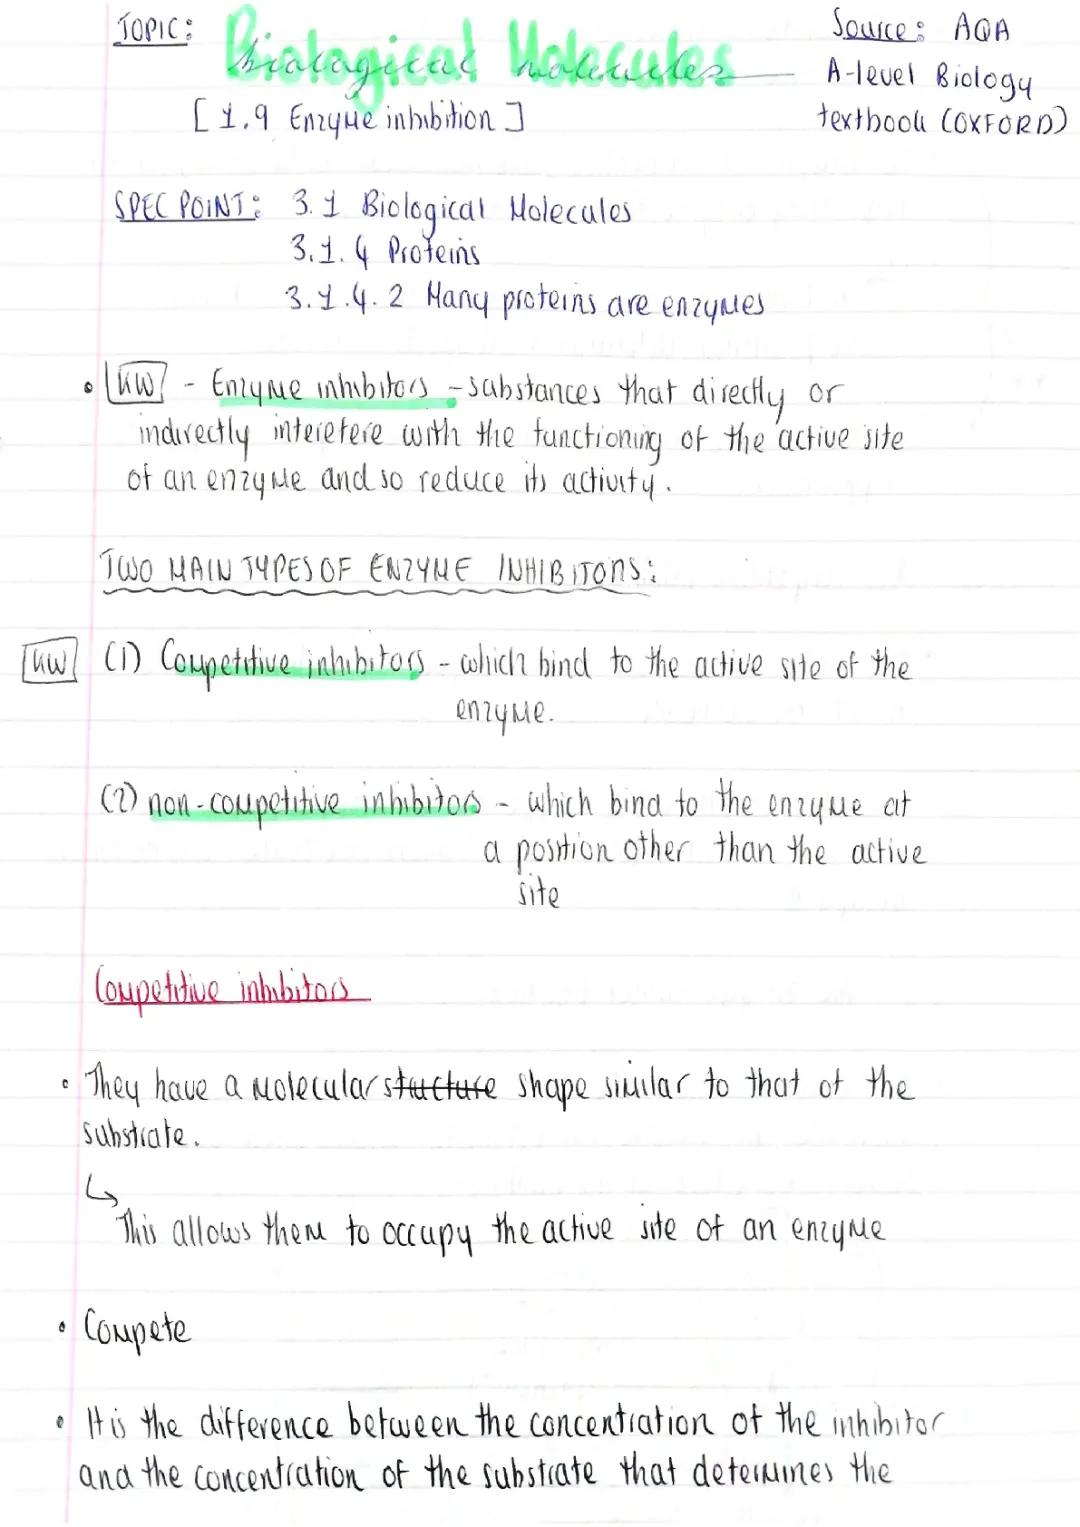 TOPIC: Biological Molecules
Source: AQA
A-level Biology
textbook (OXFORD)
[1.9 Enzyme inhibition]
SPEC POINT: 3.1 Biological Molecules
3.1.4 Proteins
3.1.4.2 Many proteins are enzymes
• KW - Enzyme inhibitors - substances that directly or
indirectly interefere with the functioning of the active site
of an enzyme and so reduce its activity.
TWO MAIN TYPES OF ENZYME INHIBITORS:
KW (1) Competitive inhibitors - which bind to the active site of the
enzyme.
(2) non-competitive inhibitors - which bind to the enzyme at
a position other than the active
site
Competitive inhibitors
• They have a molecular stucture shape similar to that of the
substrate.
↳
This allows them to occupy the active site of an enzyme
• Compete
• It is the difference between the concentration of the inhibitor
and the concentration of the substrate that determines the